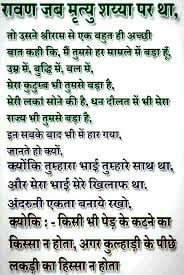 रावण जब मृत्यु शय्या पर था,
तो उसने श्रीराम से एक बहुत ही अच्छी
बात कही कि, मैं तुमसे हर मामले में बड़ा हूँ,
उम्र में, बुद्धि में, बल में,
मेरा कुटुम्ब भी तुमसे बड़ा है,
मेरी लंका सोने की है, धन दौलत में भी मेरा
राज्य भी तुमसे बड़ा है,
इन सबके बाद भी में हार गया,
जानते हो क्यों,
क्योंकि तुम्हारा भाई तुम्हारे साथ था,
और मेरा भाई मेरे खिलाफ था.
अंदरुनी एकता बनाये रखो,
क्योकि : - किसी भी पेड़ के कटने का
किस्सा न होता, अगर कुल्हाड़ी के पीछे
लकड़ी का हिस्सा न होता